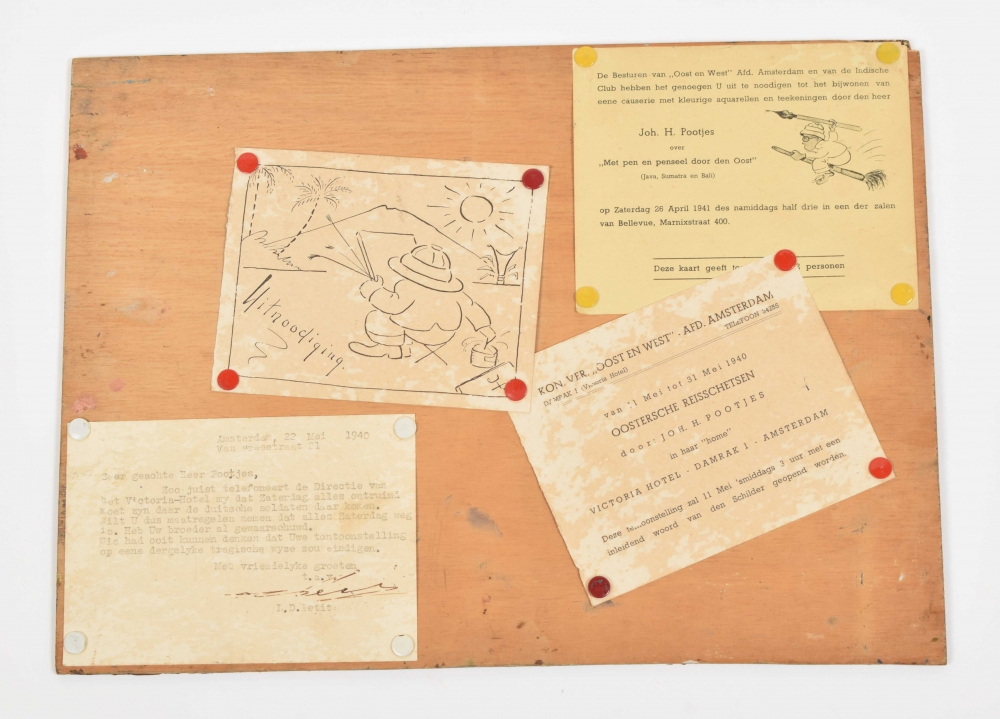 De Besturen van „Oost en West" Afd. Amsterdam en van de Indische
Club hebben het genoegen U uit te noodigen tot het bijwonen van
eene causerie met kleurige aquareilen en teekeningen door den heer
Joh. H. Pootjes
over
„Met pen en penseel door den Oost"
(Java, Sumatra en Bali)
op Zaterdag 26 April 1941 des namiddags half drie in een der zalen
van Bellevue, Marnixstraat 400.
Deze kaart geeft personen
Uitnoodiging.
KON. VER. „OOST EN WEST" - AFD. AMSTERDAM
DAMRAK 1 (Victoria Hotel) TELEFOON
van 11 Mei tot 31 Mei 1940
OOSTERSCHE REISSCHETSEN
door: JOH. H. POOTJES
in haar "home"
VICTORIA HOTEL - DAMRAK 1 - AMSTERDAM
Deze tentoonstelling zal 11 Mei 'smiddags 3 uur met een
inleidend woord van den Schilder geopend worden.
Amsterdam, 22 Mei 1940
Zeer geachte Heer Pootjes,
Zoo juist telefoneert de Directie van
het Victoria-Hotel my dat Zaterdag alles ontruimd
moet zyn daar de duitsche soldaten daar komen.
Wilt U dus maatregelen nemen dat alles Zaterdag weg
is. Met Uw broeder al gewaarschuwd.
Wie had ooit kunnen denken dat Uwe tontoonstelling
op eene dergelyke tragische wyze zou eindigen.
Met vriendelyke groeten
t.a.v.
L.D.Petit.